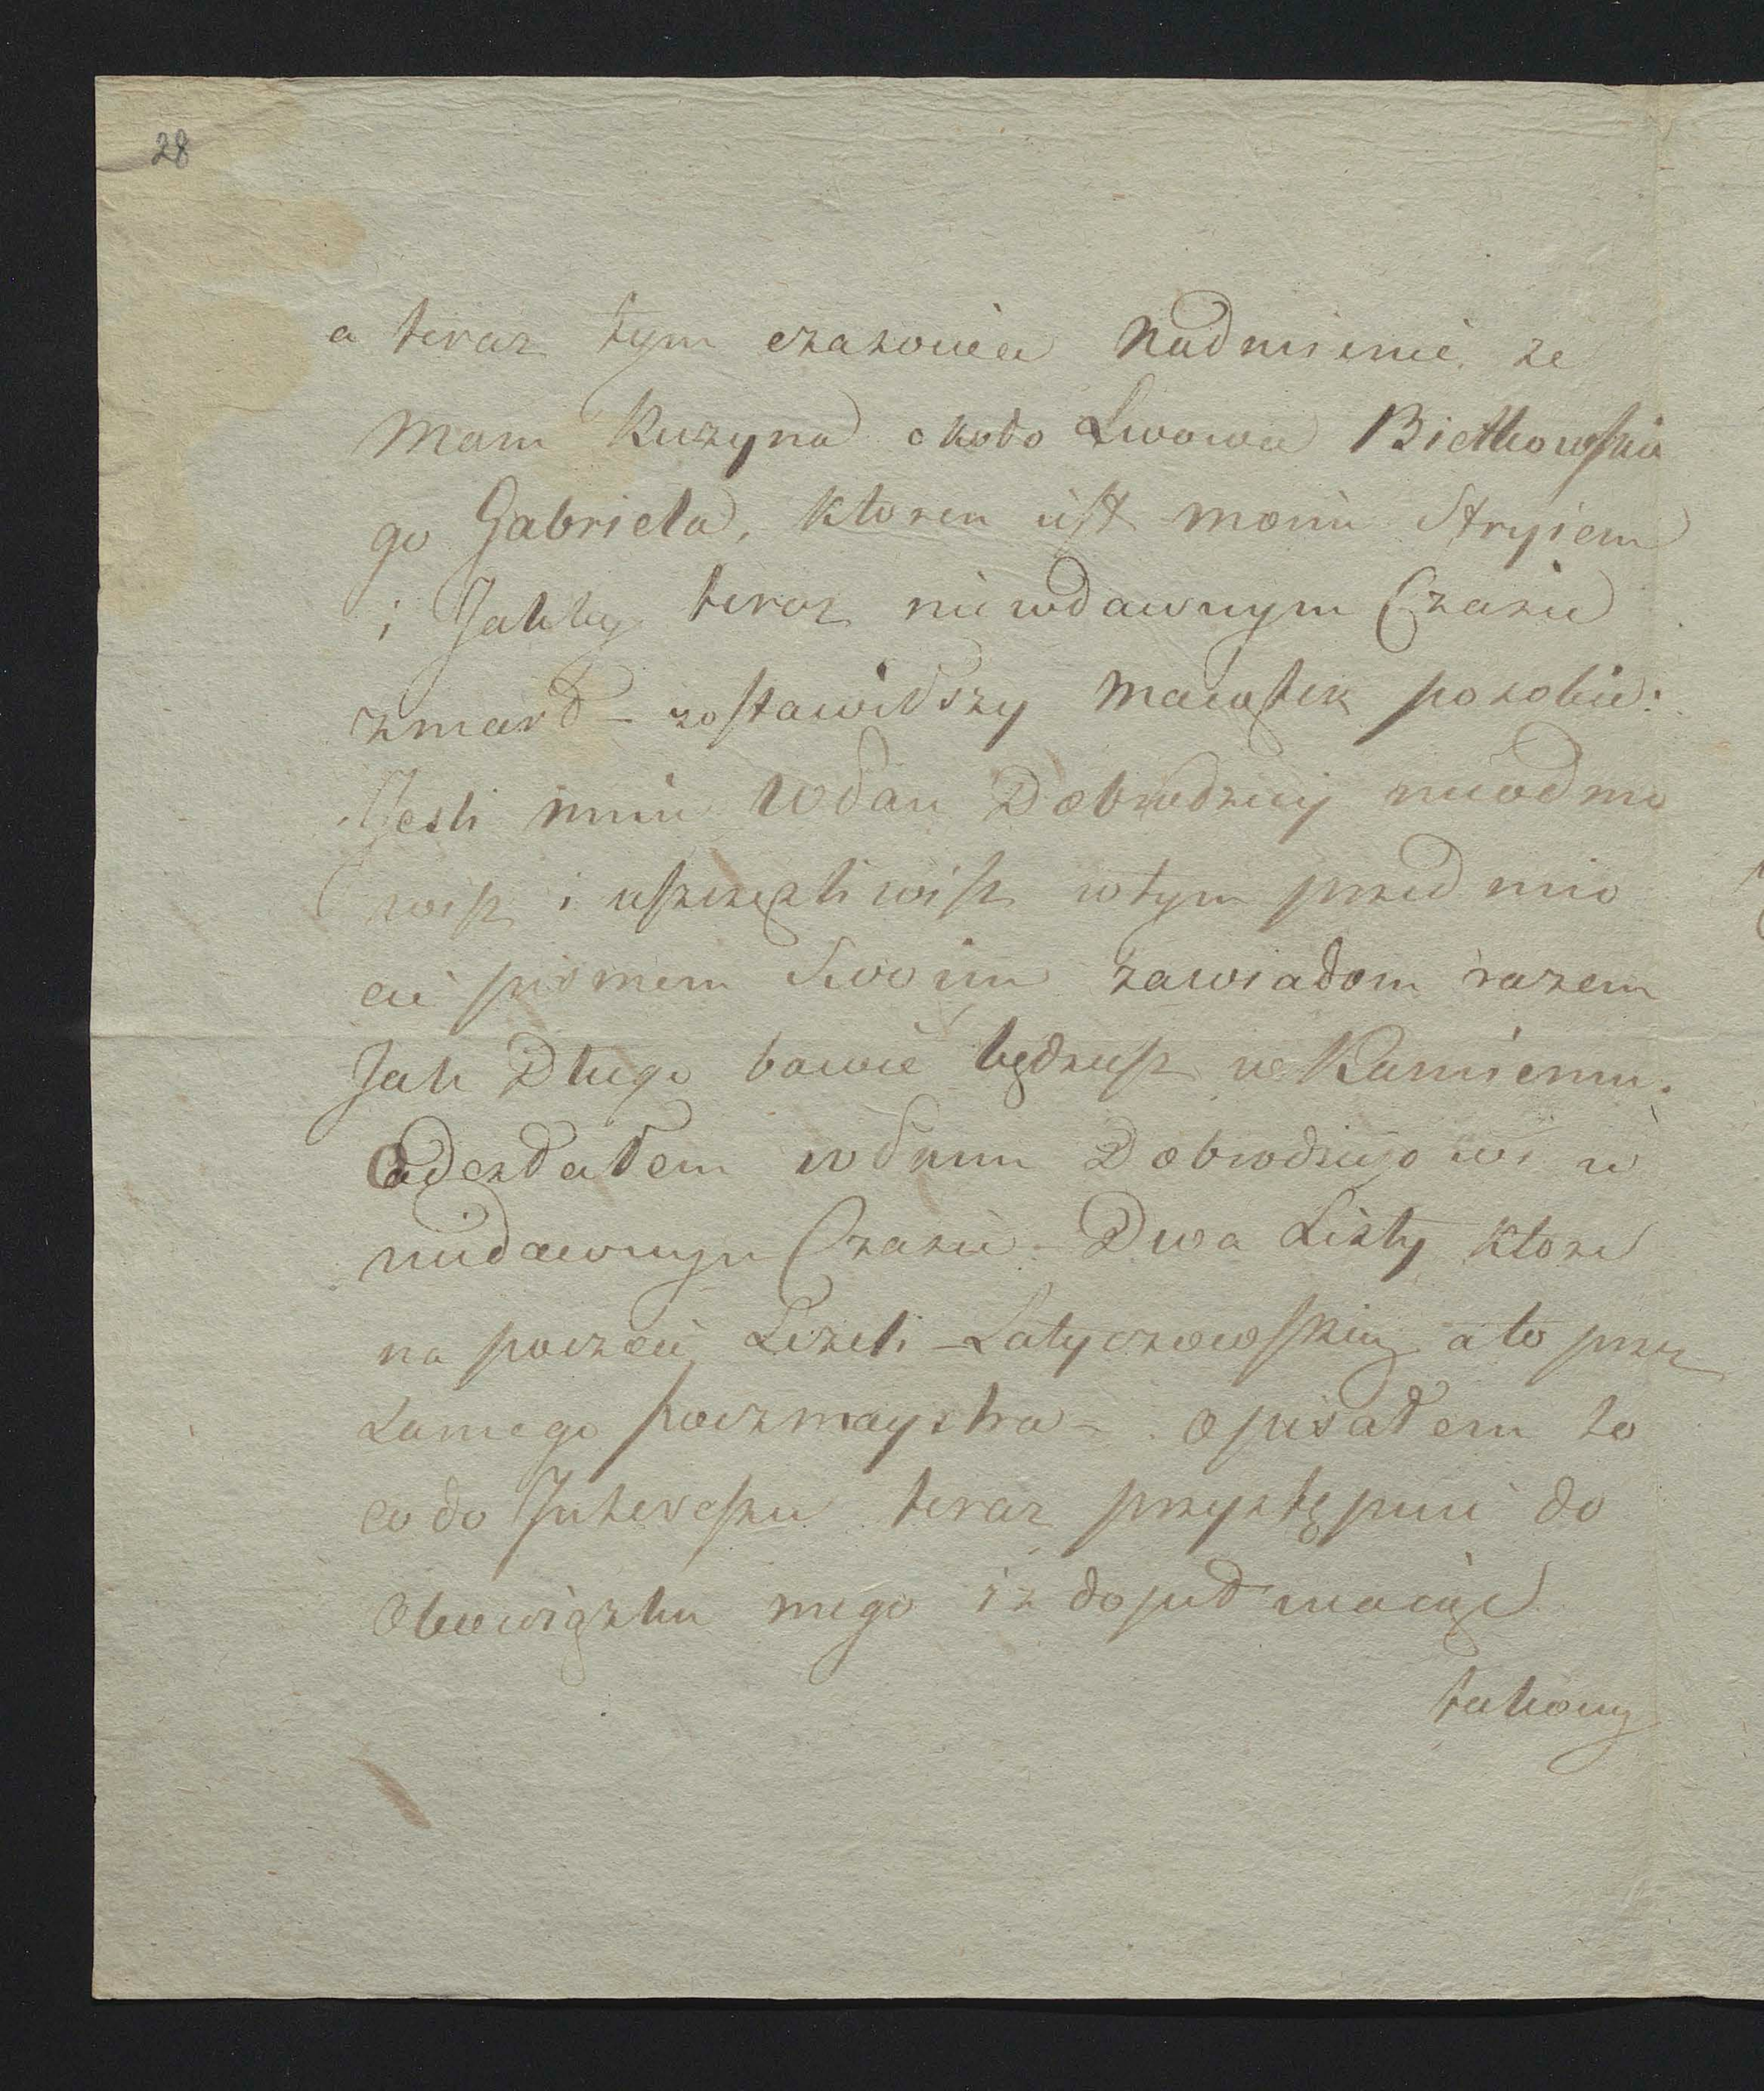 28
a teraz tym czasowie Nadmienie, ze
Mam Kuzyna około Lwowa Bietkowskie
go Gabriela, ktoren iest moim Stryiem
i Jakby teraz niewdawnym Czasie
zmarł – zostawiwszy Maiątek po sobie:
Jesli mnie WPan Dobrodziey nieodmo
wisz i uszczęśliwisz w tym przedmio
cie pismem Swoim zawiadom razem
Jak Długo bawić będziesz w Kamiencu.
Odesłałem WPanu Dobrodzieiowi w
niedawnym Czasie. Dwa Listy ktore
na poczcie Leżeli – Latyczowskiey a to przez
Samego poczmaystra – opisałem to
co do Interesu teraz przystępuie do
Obowiązku mego iż dopuł maiąc
takowy